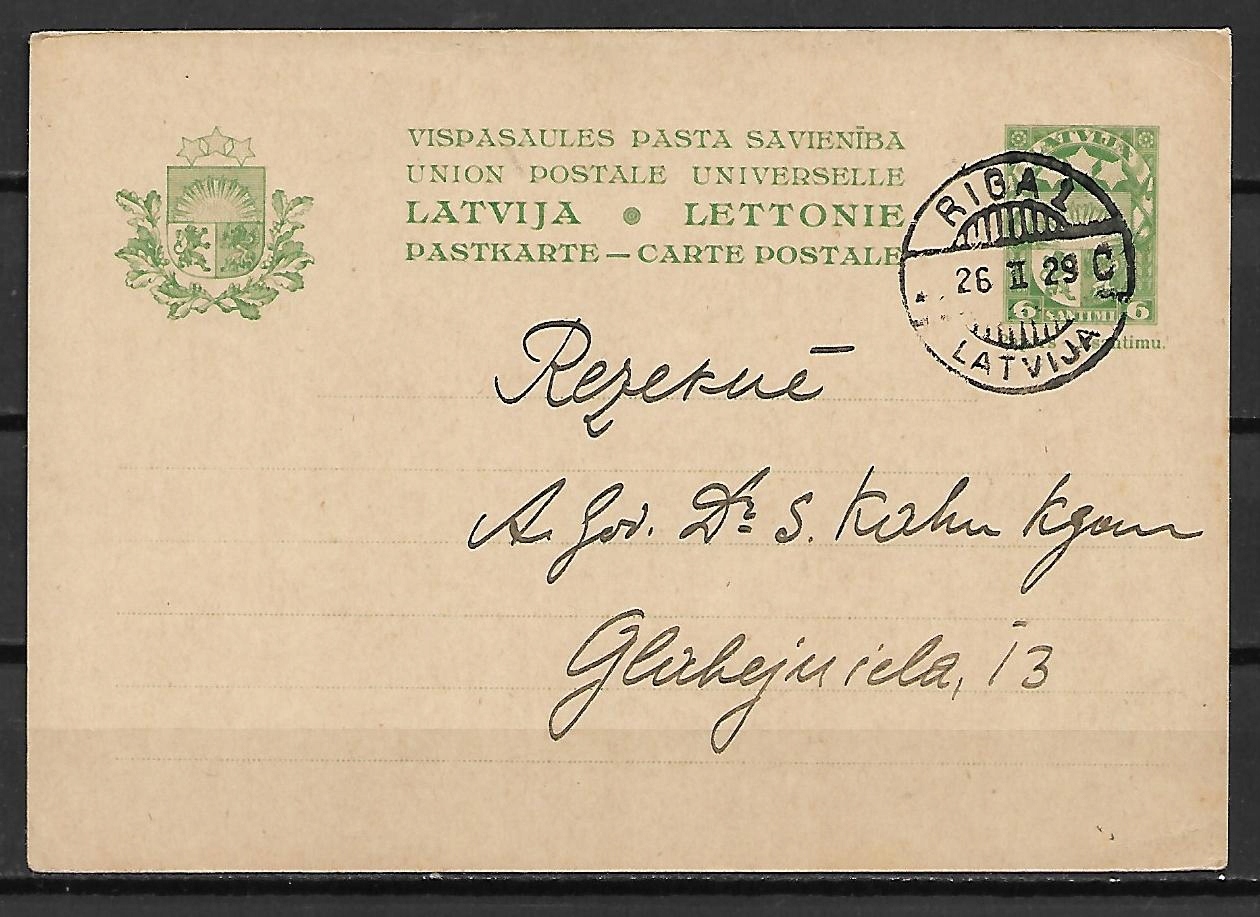 VISPASAULES PASTA SAVIENĪBA
UNION POSTALE UNIVERSELLE
LATVIJA LETTONIE
PASTKARTE — CARTE POSTALE
LATVIJA
6 SANTIMI 6
RIGA 1
26 II 29 C
LATVIJA
Rezeknē
A. God. Dr S. Kahn Kgam
iela, 13